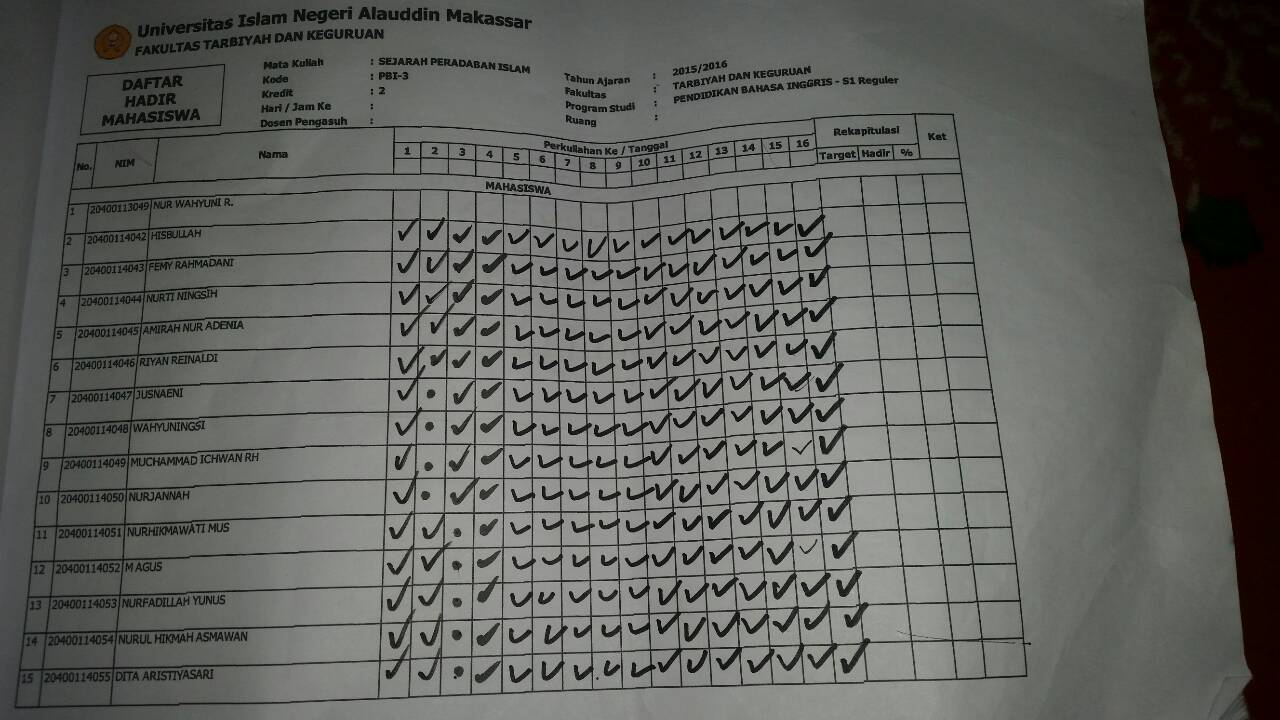 Universitas Islam Negeri Alauddin Makassar
FAKULTAS TARBIYAH DAN KEGURUAN
DAFTAR
HADIR
MAHASISWA
Mata Kuliah : SEJARAH PERADABAN ISLAM
Kode : PBI-3
Kredit : 2
Hari / Jam Ke :
Dosen Pengasuh :
Tahun Ajaran : 2015/2016
Fakultas : TARBIYAH DAN KEGURUAN
Program Studi : PENDIDIKAN BAHASA INGGRIS - S1 Reguler
Ruang :
No. NIM Nama Perkuliahan Ke / Tanggal Rekapitulasi Ket
1 2 3 4 5 6 7 8 9 10 11 12 13 14 15 16 Target Hadir %
MAHASISWA
1 20400113049 NUR WAHYUNI R.
2 20400114042 HISBULLAH ✓ ✓ ✓ ✓ ✓ ✓ ✓ ✓ ✓ ✓ ✓ ✓ ✓ ✓ ✓ ✓
3 20400114043 FEMY RAHMADANI ✓ ✓ ✓ ✓ ✓ ✓ ✓ ✓ ✓ ✓ ✓ ✓ ✓ ✓ ✓ ✓
4 20400114044 NURTI NINGSIH ✓ ✓ ✓ ✓ ✓ ✓ ✓ ✓ ✓ ✓ ✓ ✓ ✓ ✓ ✓ ✓
5 20400114045 AMIRAH NUR ADENIA ✓ ✓ ✓ ✓ ✓ ✓ ✓ ✓ ✓ ✓ ✓ ✓ ✓ ✓ ✓ ✓
6 20400114046 RIYAN REINALDI ✓ ✓ ✓ ✓ ✓ ✓ ✓ ✓ ✓ ✓ ✓ ✓ ✓ ✓ ✓ ✓
7 20400114047 JUSNAENI ✓ • ✓ ✓ ✓ ✓ ✓ ✓ ✓ ✓ ✓ ✓ ✓ ✓ ✓ ✓
8 20400114048 WAHYUNINGSI ✓ • ✓ ✓ ✓ ✓ ✓ ✓ ✓ ✓ ✓ ✓ ✓ ✓ ✓ ✓
9 20400114049 MUCHAMMAD ICHWAN RH ✓ • ✓ ✓ ✓ ✓ ✓ ✓ ✓ ✓ ✓ ✓ ✓ ✓ ✓ ✓
10 20400114050 NURJANNAH ✓ • ✓ ✓ ✓ ✓ ✓ ✓ ✓ ✓ ✓ ✓ ✓ ✓ ✓ ✓
11 20400114051 NURHIKMAWATI MUS ✓ ✓ • ✓ ✓ ✓ ✓ ✓ ✓ ✓ ✓ ✓ ✓ ✓ ✓ ✓
12 20400114052 M AGUS ✓ ✓ • ✓ ✓ ✓ ✓ ✓ ✓ ✓ ✓ ✓ ✓ ✓ ✓ ✓
13 20400114053 NURFADILLAH YUNUS ✓ ✓ • ✓ ✓ ✓ ✓ ✓ ✓ ✓ ✓ ✓ ✓ ✓ ✓ ✓
14 20400114054 NURUL HIKMAH ASMAWAN ✓ ✓ • ✓ ✓ ✓ ✓ ✓ ✓ ✓ ✓ ✓ ✓ ✓ ✓ ✓
15 20400114055 DITA ARISTIYASARI ✓ ✓ • ✓ ✓ ✓ ✓ ✓ ✓ ✓ ✓ ✓ ✓ ✓ ✓ ✓